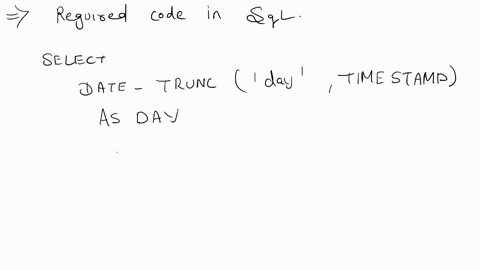 => Required code in SqL.
SELECT
DATE - TRUNC ('day', TIMESTAMP)
AS DAY